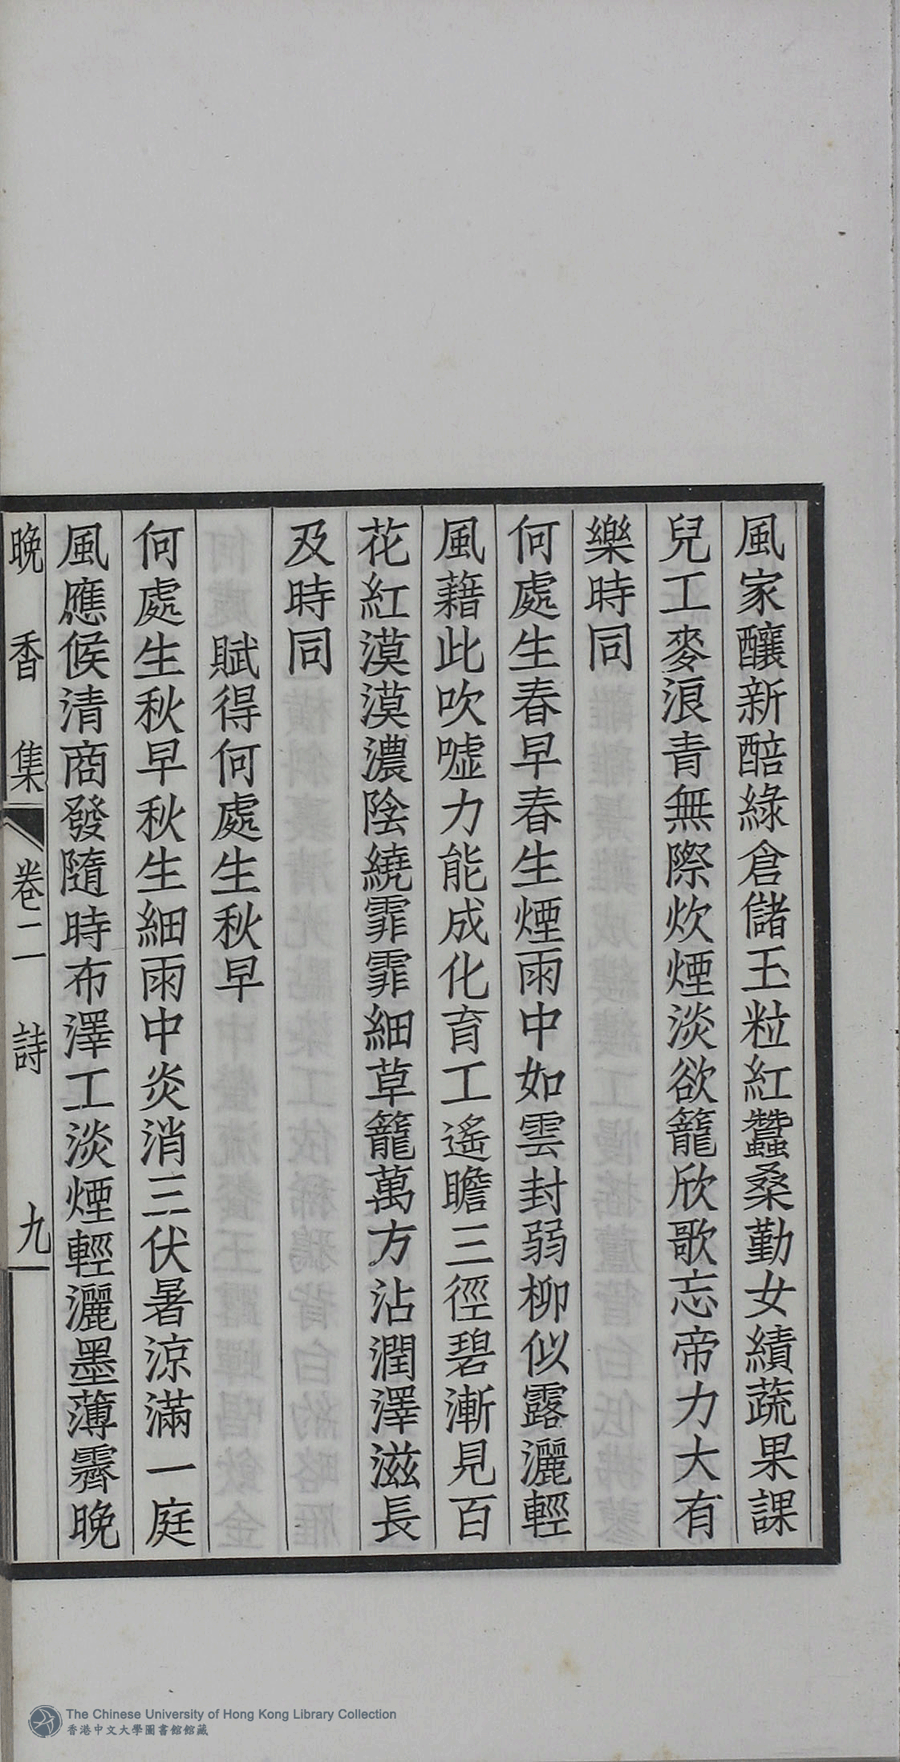 風家釀新醅綠倉儲玉粒紅蠶桑勤女績蔬果課
兒工麥浪青無際炊煙淡欲籠欣歌忘帝力大有
樂時同
何處生春早春生煙雨中如雲封弱柳似露灑輕
風藉此吹噓力能成化育工遙瞻三徑碧漸見百
花紅漠漠濃陰繞霏霏細草籠萬方沾潤澤滋長
及時同
賦得何處生秋早
何處生秋早秋生細雨中炎消三伏暑涼滿一庭
風應候清商發隨時布澤工淡煙輕灑墨薄霽晚
晚香集 卷二 詩 九
The Chinese University of Hong Kong Library Collection
香港中文大學圖書館館藏